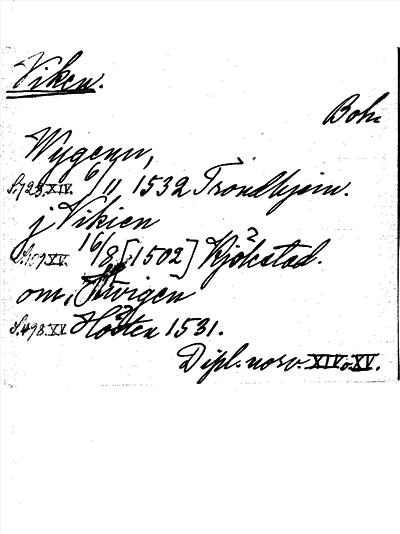 Viken.
Boh.
Wygenn,
S. 723. XIV. 6/11 1532 Trondhjem.
j Vikien
XV. 16/8 [1502] Kjølstad.
om, Hwigen
S. 498. XV. Hösten 1531.
Dipl. norv. XIV o. XV.